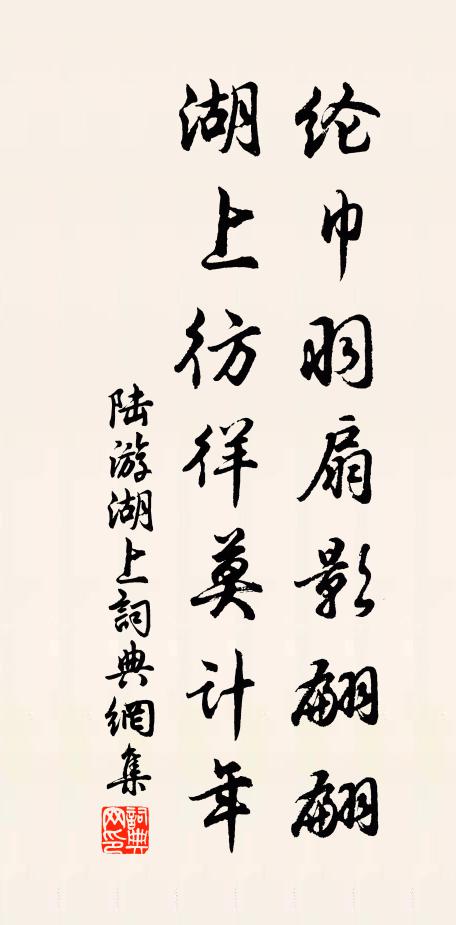 纶巾羽扇影翩翩
湖上彷徉莫计年
陆游湖上詞典網集
詞典网印